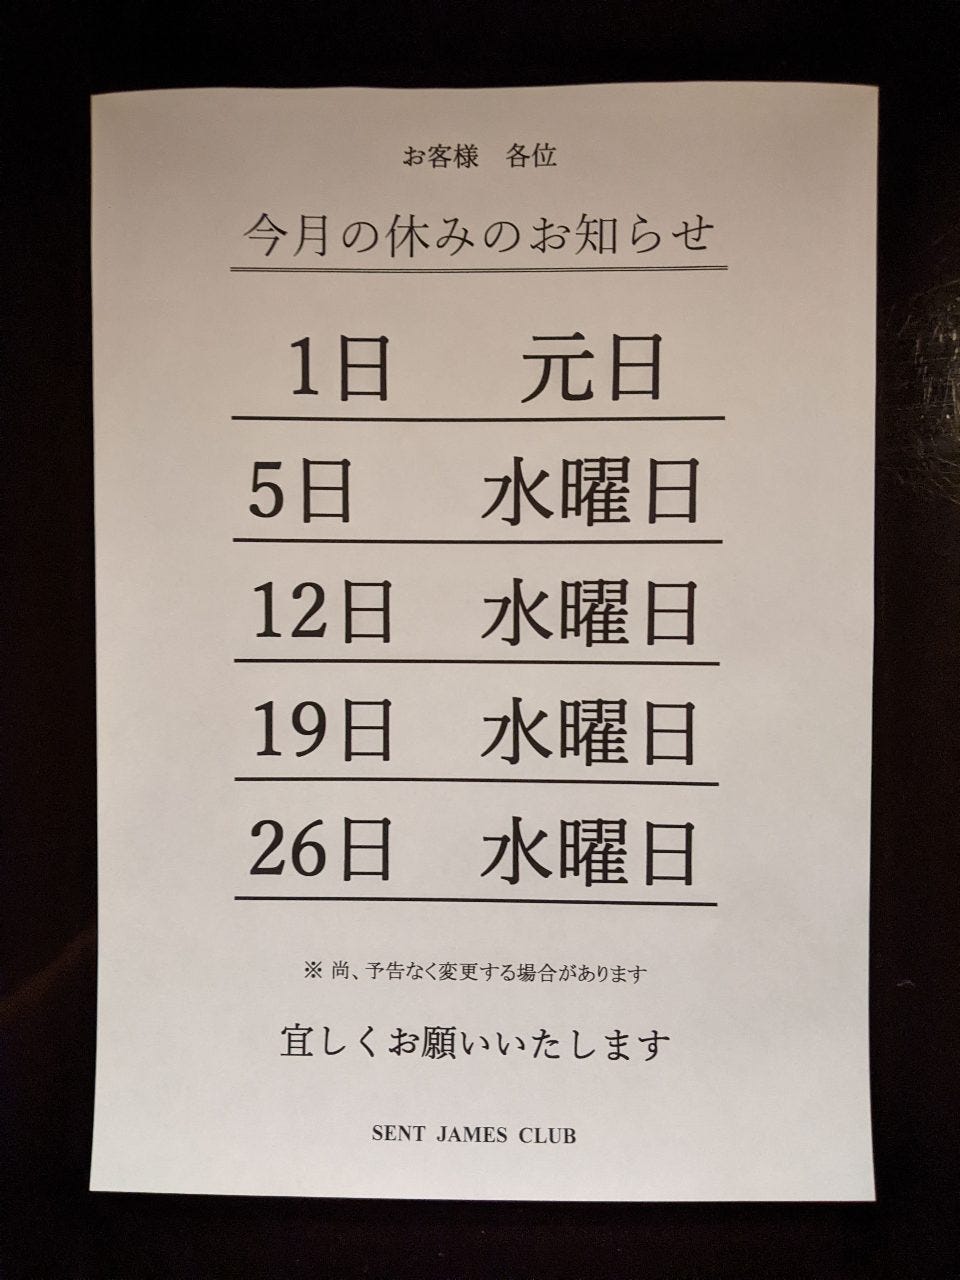 お客様　各位
今月の休みのお知らせ
1日　元日
5日　水曜日
12日　水曜日
19日　水曜日
26日　水曜日
※ 尚、予告なく変更する場合があります
宜しくお願いいたします
SENT JAMES CLUB